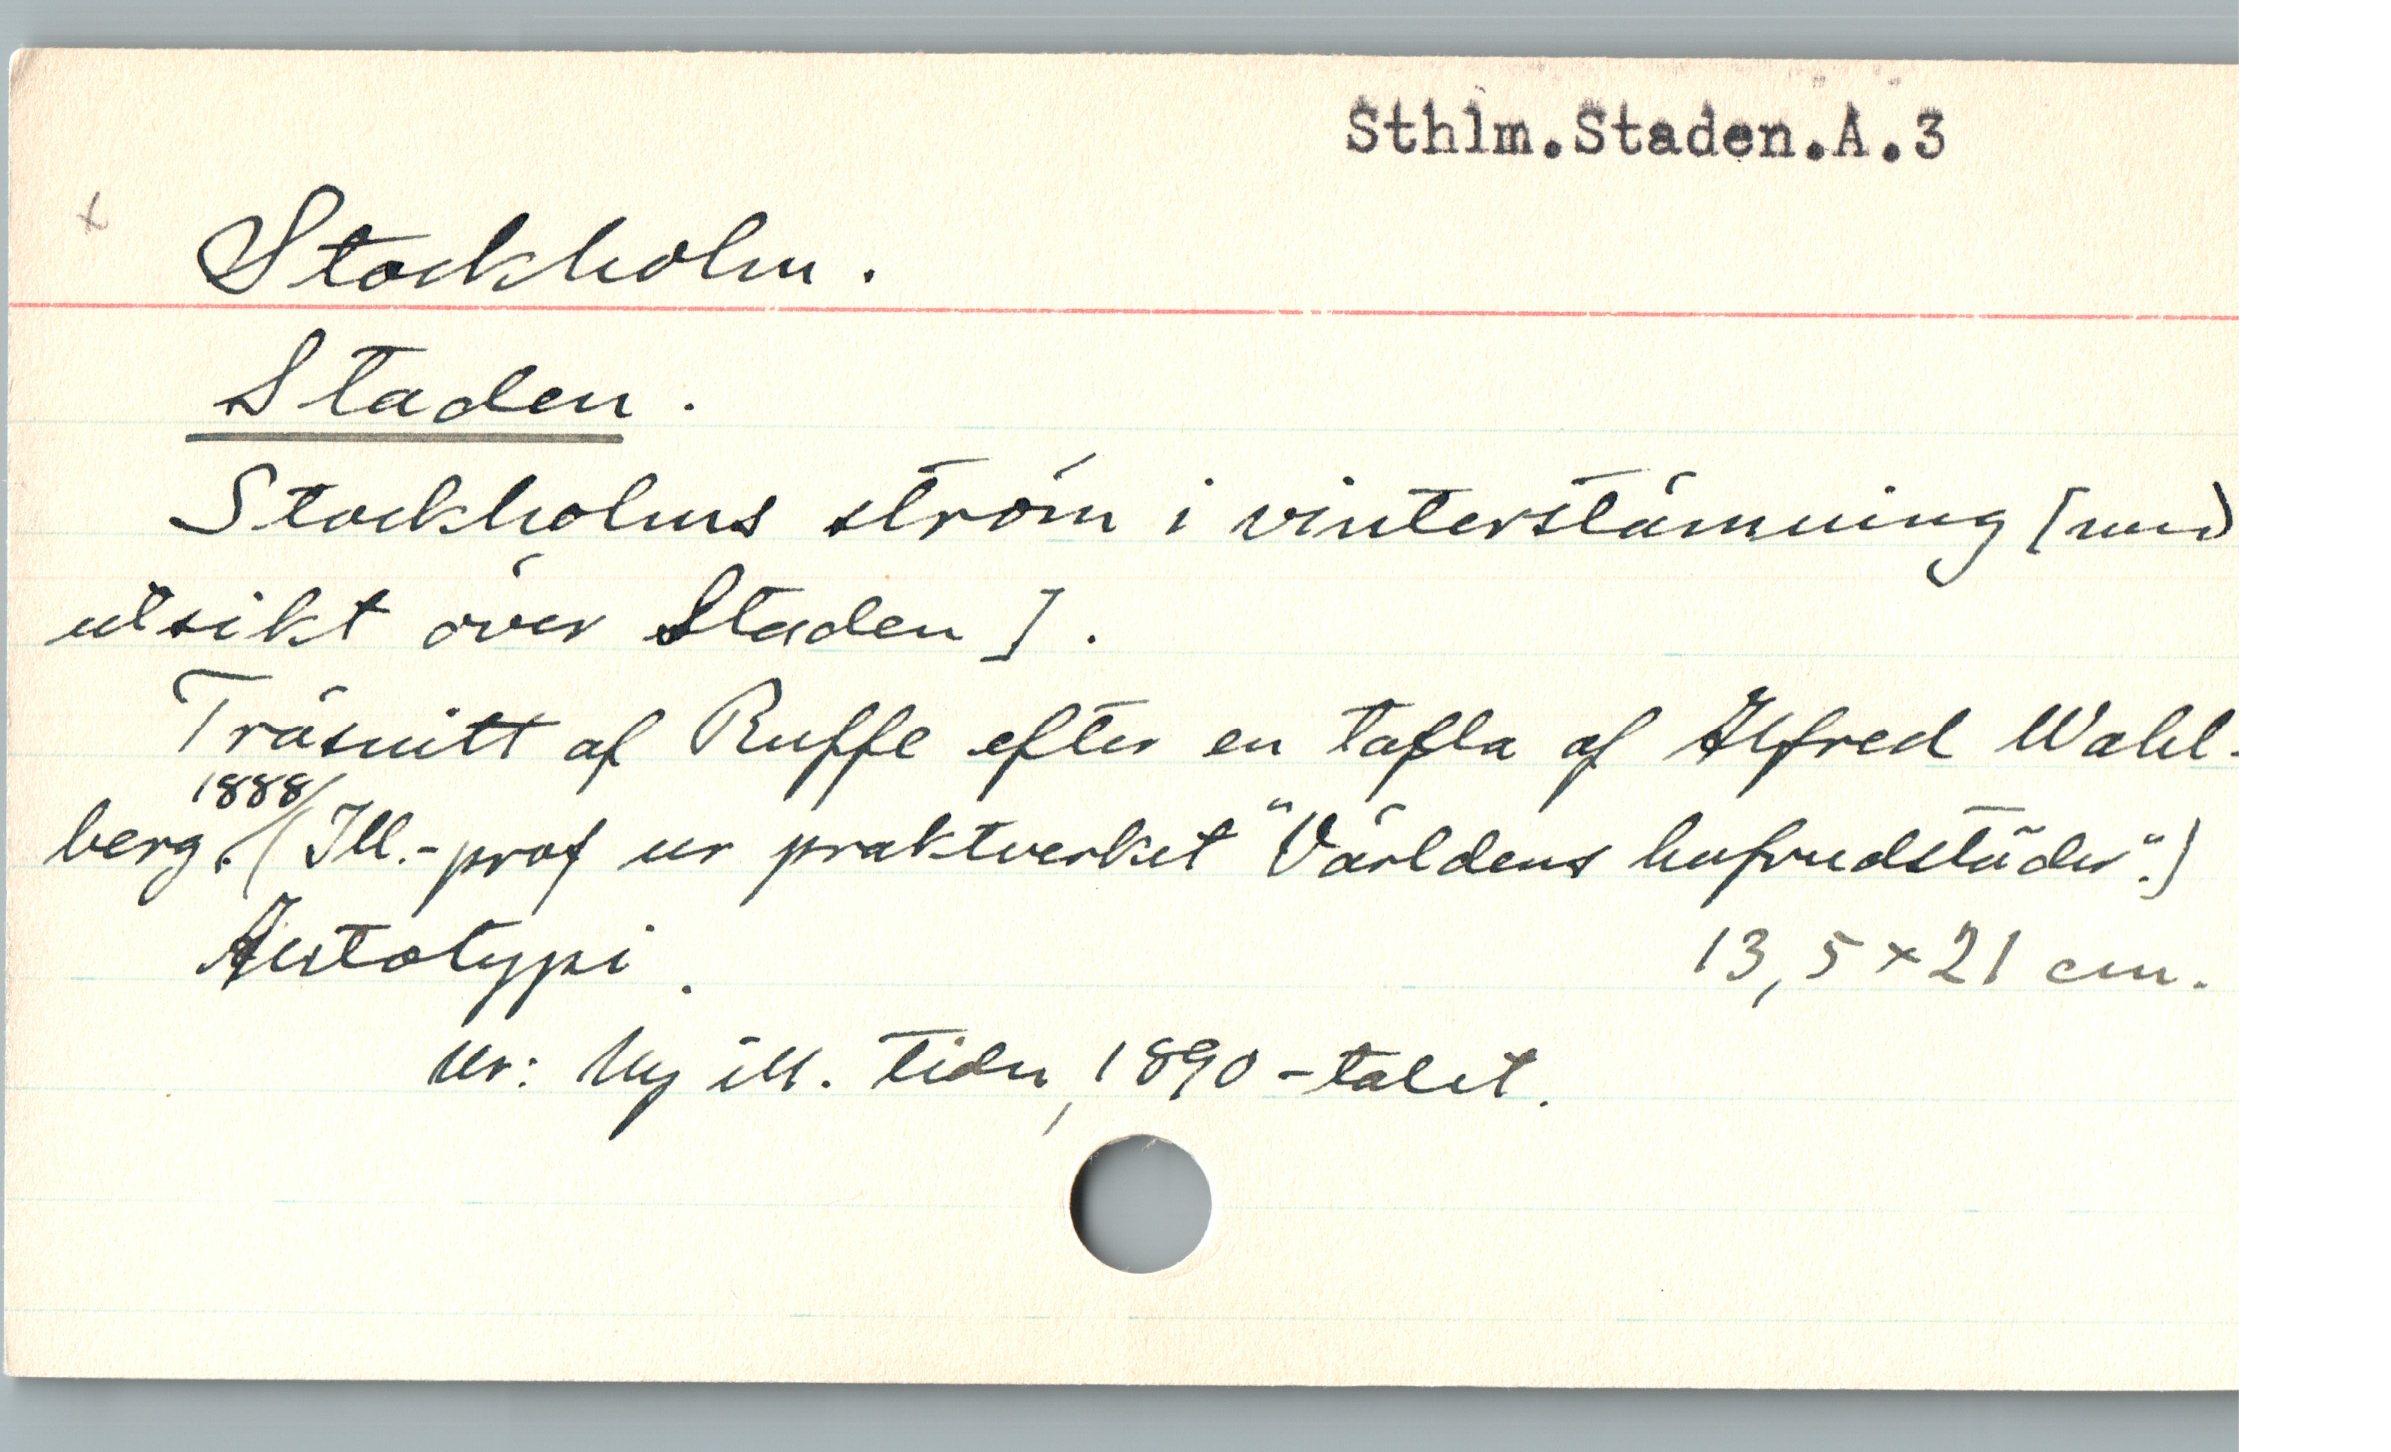 Sthlm.Staden.A.3
x
Stockholm.
Staden.
Stockholms ström i vinterstämning [med
utsikt över Staden].
Träsnitt af Ruffe efter en tafla af Alfred Wahl-
1888
berg. (Ill.-prof ur praktverket "Världens hufvudstäder".)
Autotypi.
13,5 x 21 cm.
Ur: Ny ill. tidn, 1890-talet.